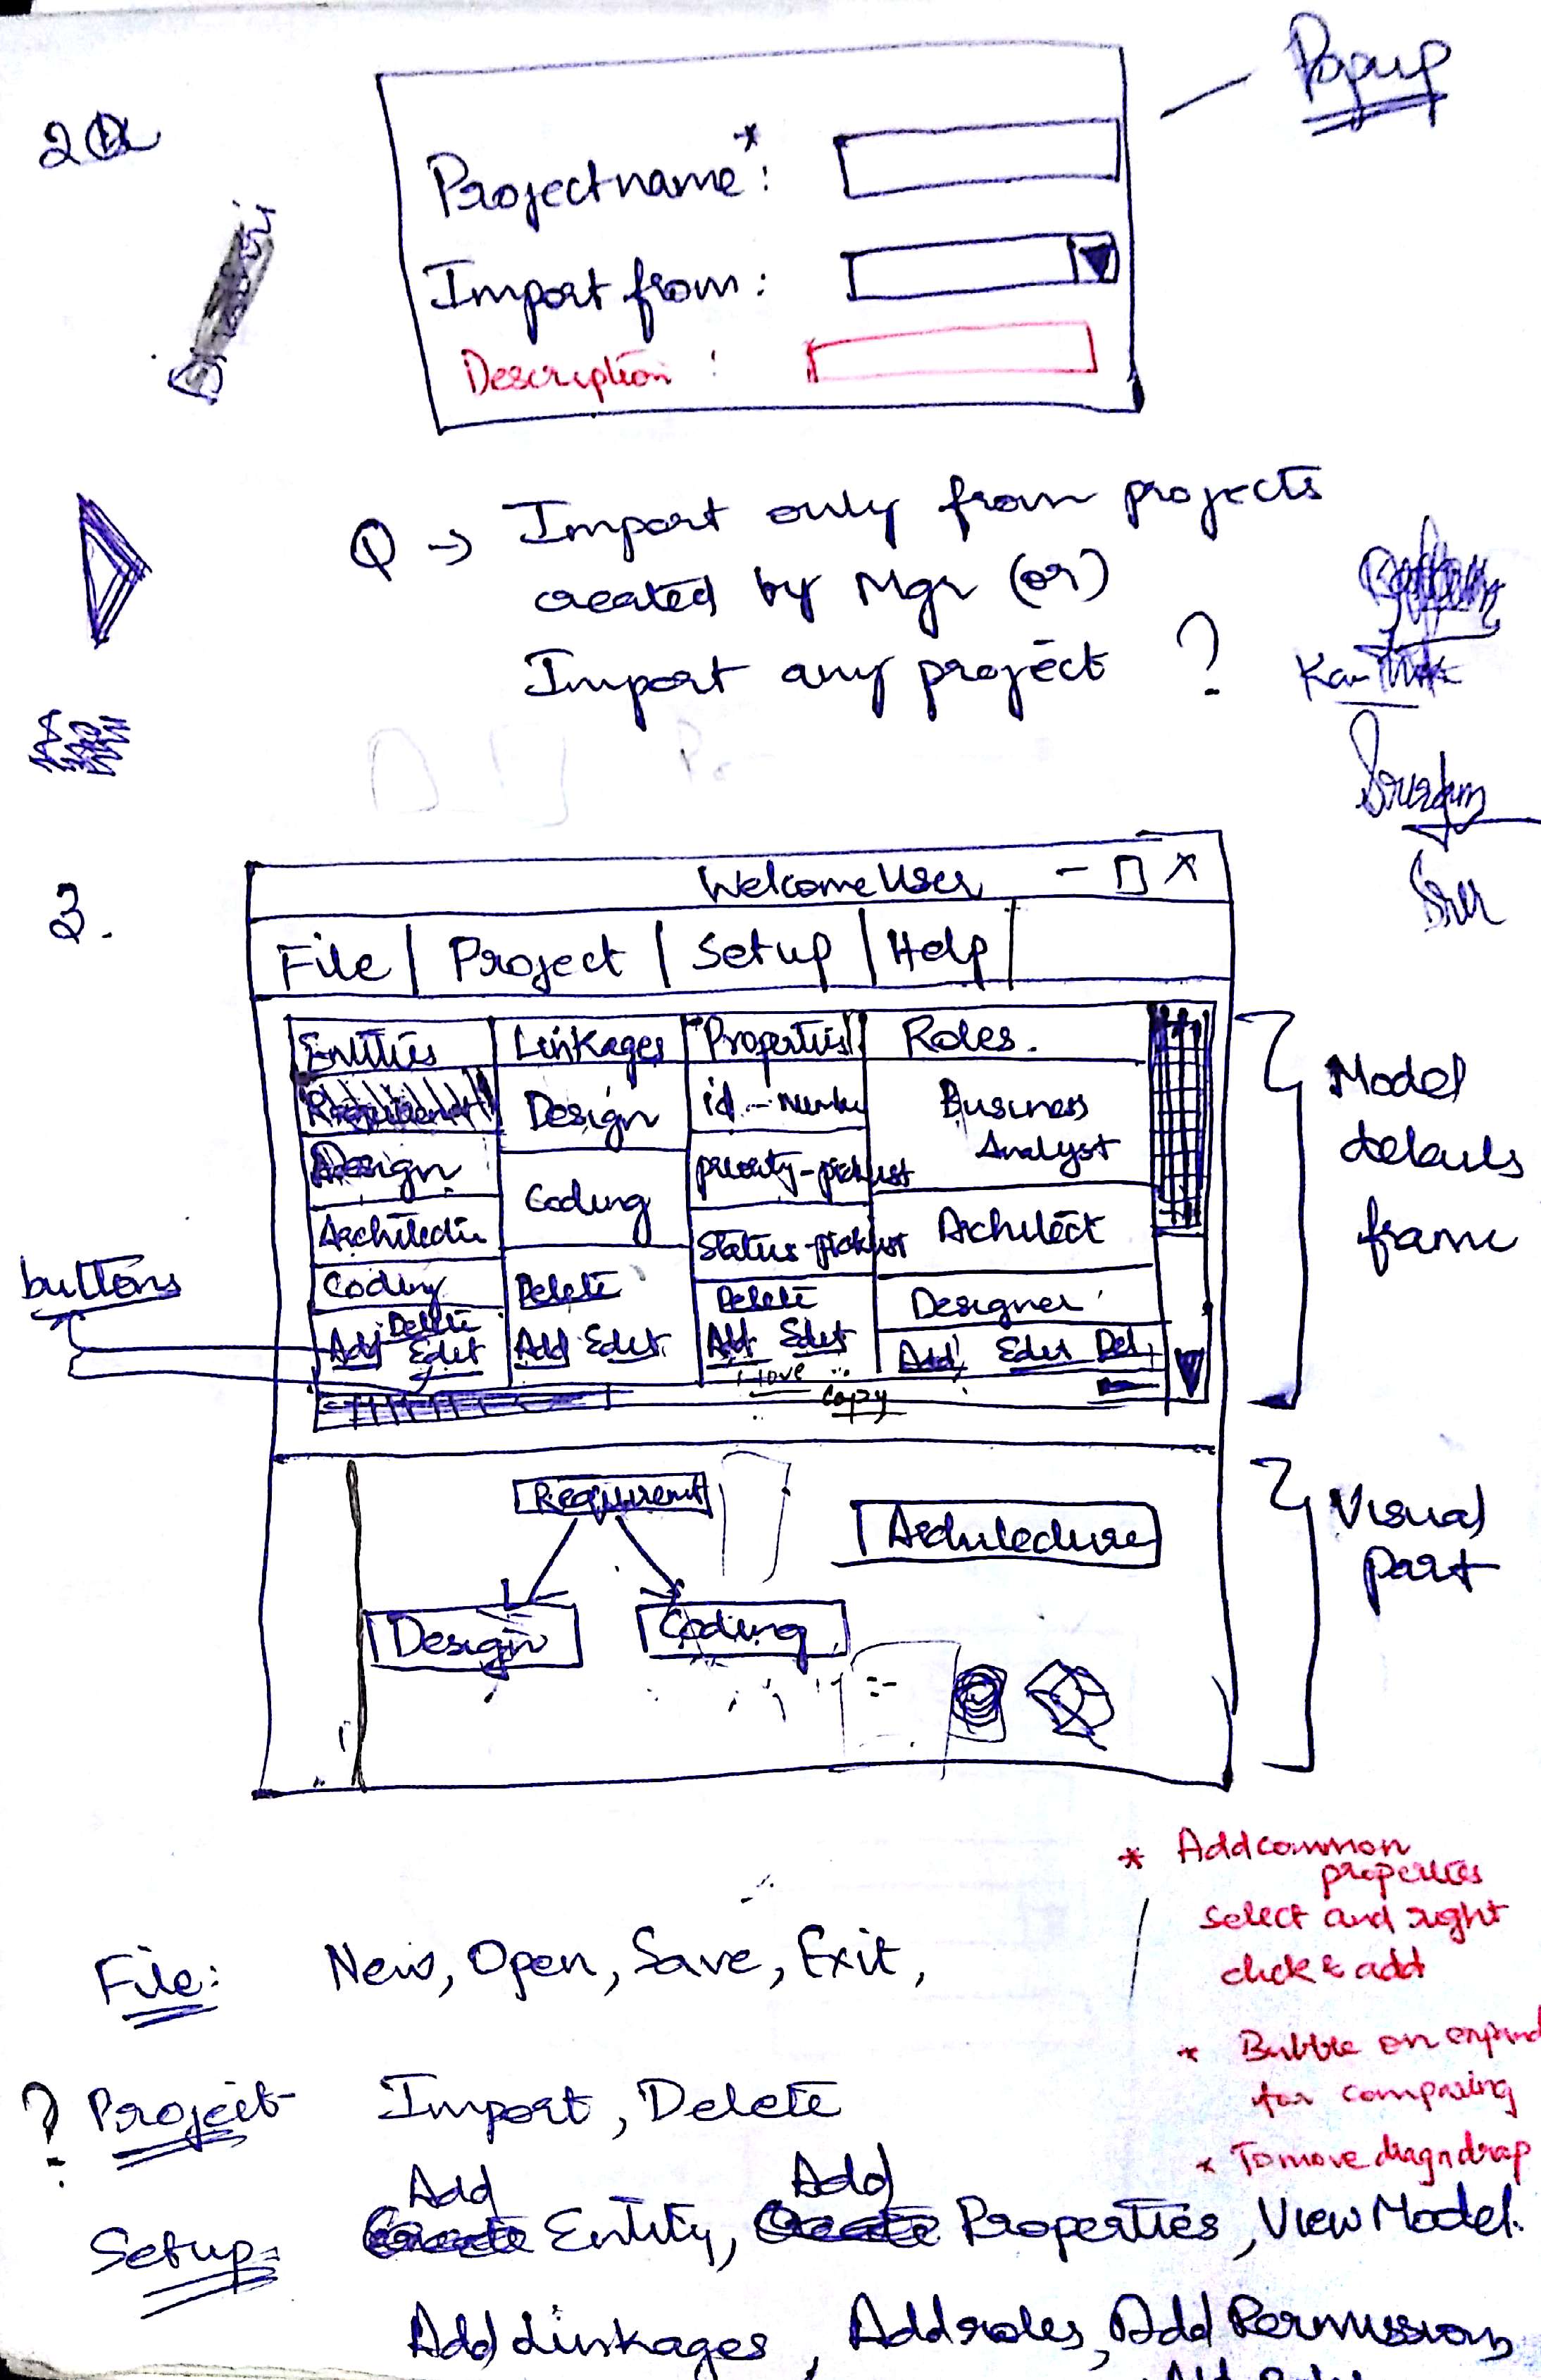 Popup
2a
Projectname*:
Import from:
Description :
Q → Import only from projects
created by Mgr (or)
Import any project ?
3.
Welcome User - X
File | Project | Setup | Help
Entities Linkages Properties Roles.
Requirement Design id - number Business Analyst
Design Coding priority-picklist Architect
Architectu status-picklist Designer
Coding
Delete Delete Delete
Add Edit Add Edit Add Edit Add Edit Del
Move
Copy
buttons
Model
details
frame
Requiremt
Architecture
Design Coding
Visual
part
* Add common
properties
select and right
click & add
File: New, Open, Save, Exit,
* Bubble on expand
for comparing
? Project- Import, Delete
* To move drag n drop
Add Add
Setup= Create Entity, Create Properties, View Model.
Add Linkages, Add roles, Add Permissions